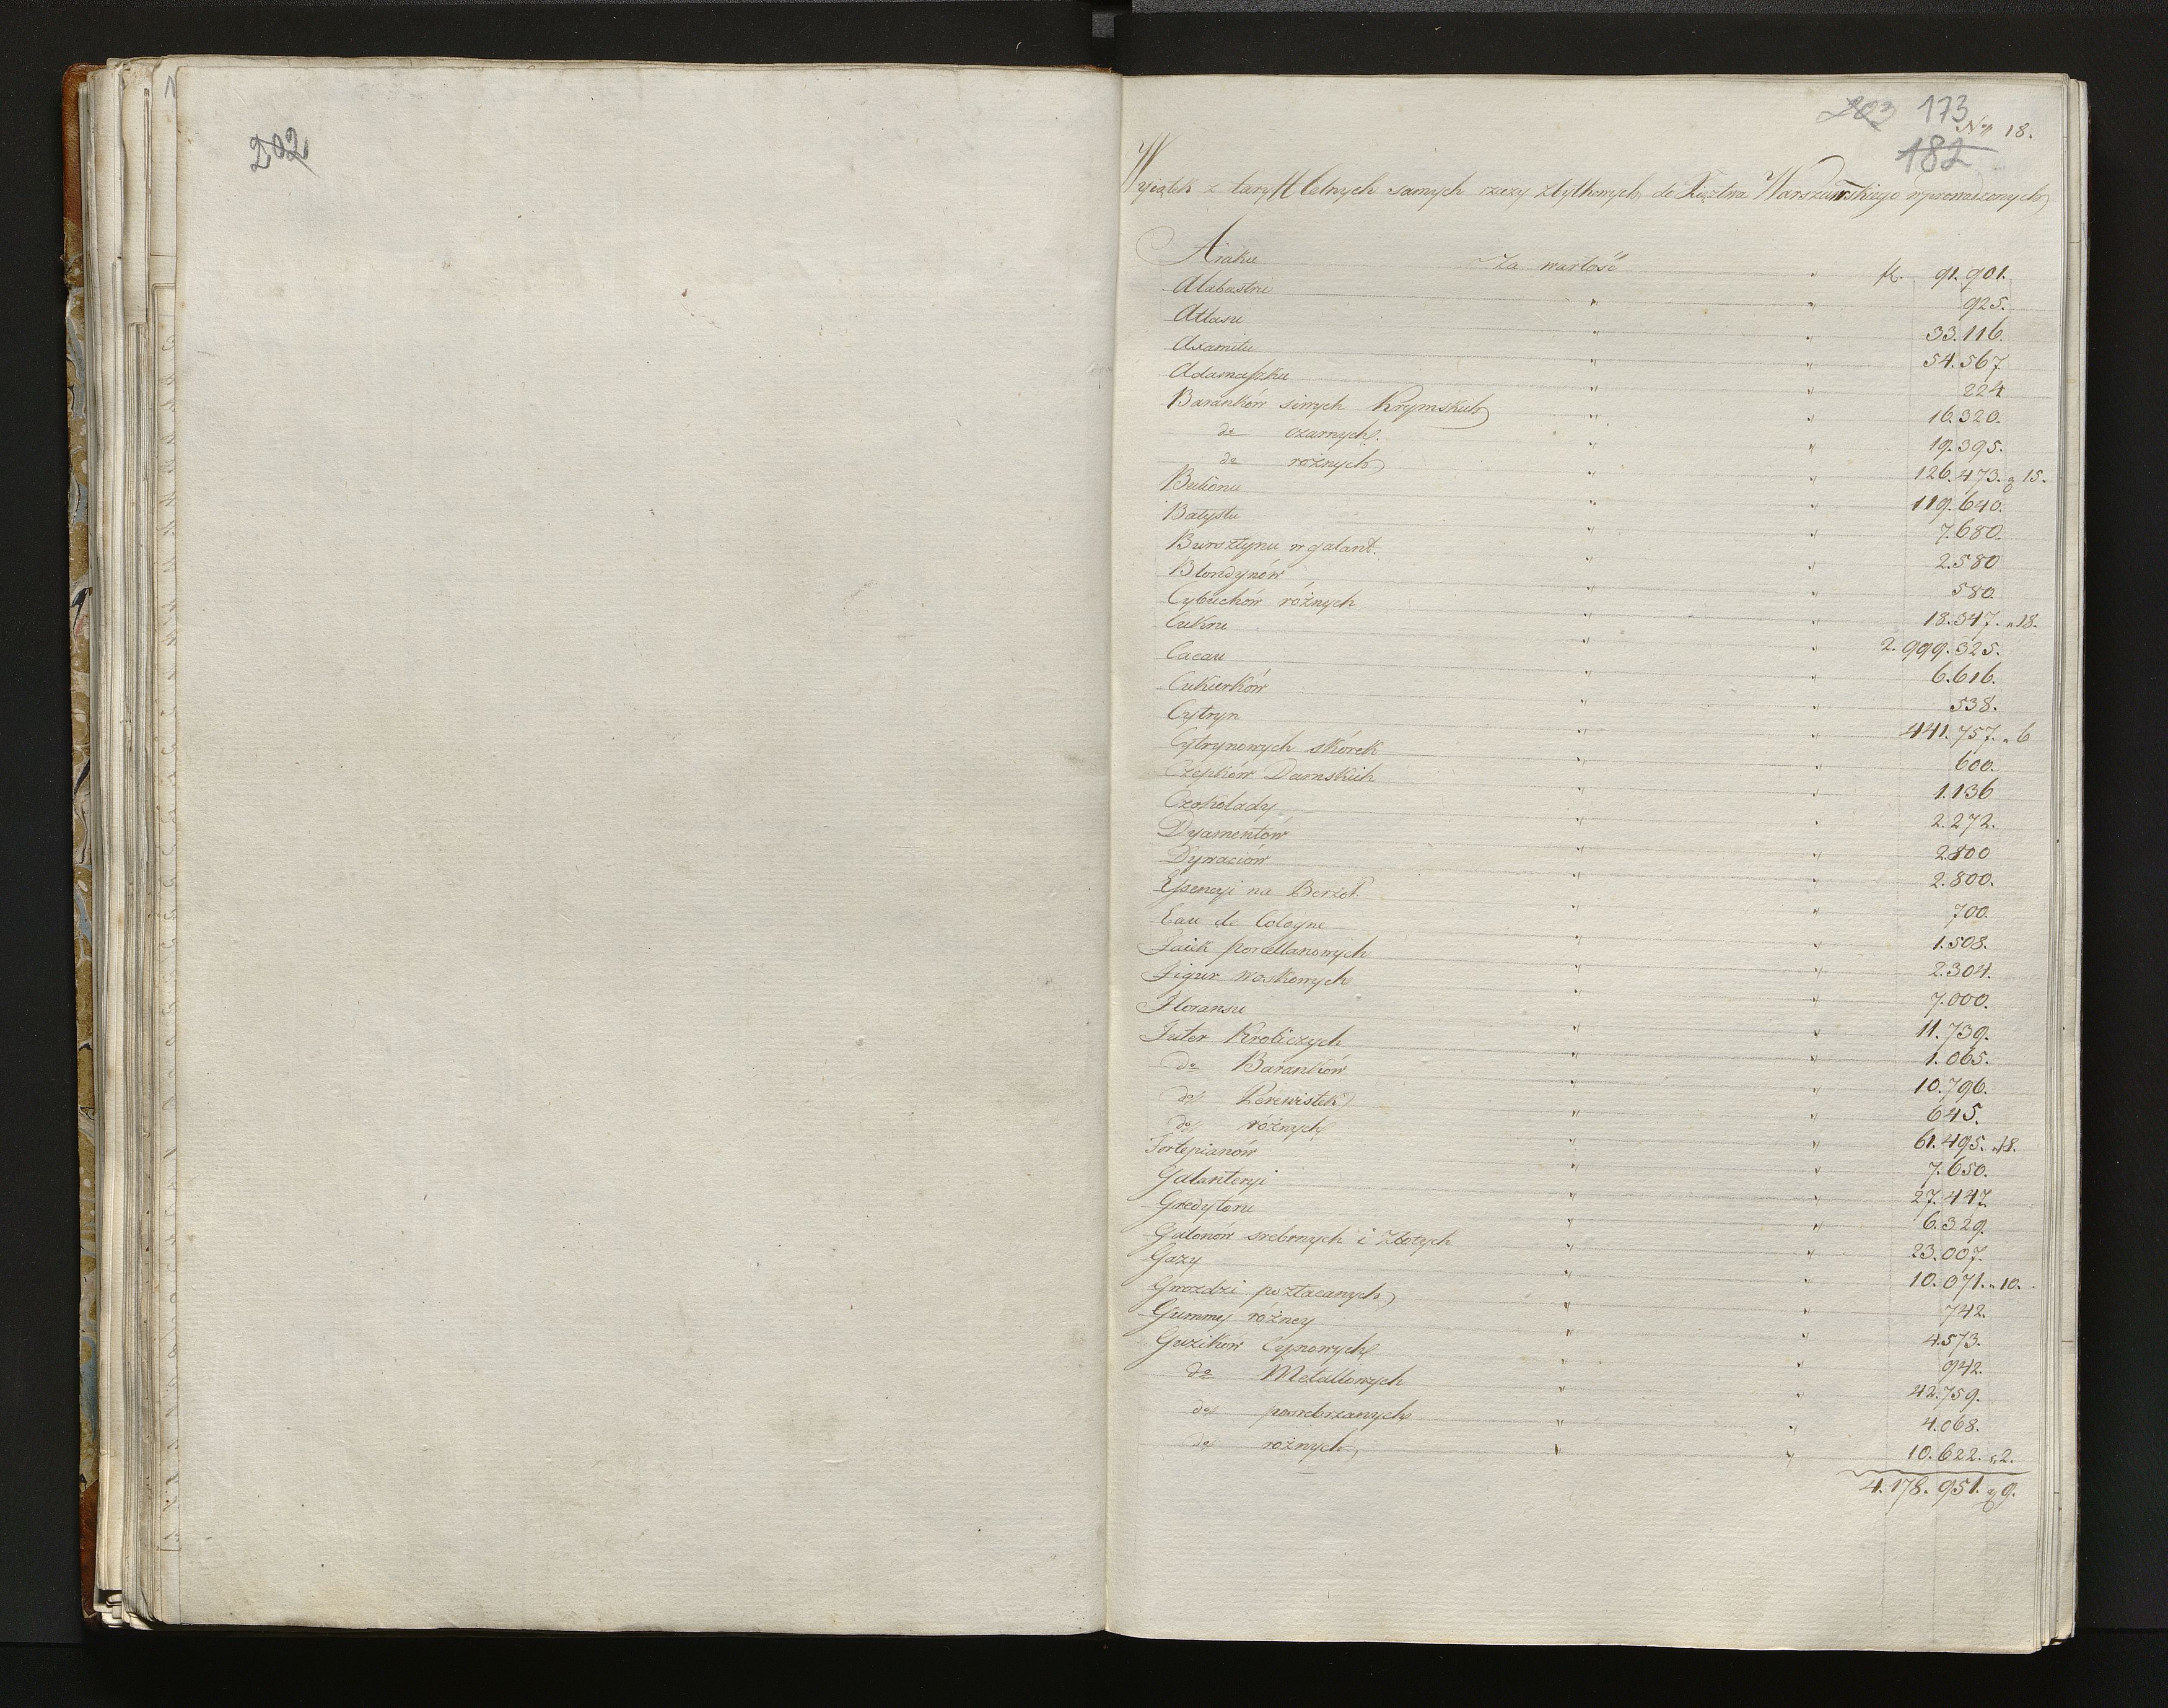 202
203 173
Nº 18.
182
Wyiątek z taryff Celnych samych rzeczy zbytkowych do Xięztwa Warszawskiego wprowadzonych
Araku Za wartość " fl. 91.901.
Alabastru " " 925.
Atlasu " " 33.116.
Axamitu " " 54.567
Adamaszku " " 224
Baranków siwych Krymskich " " 16.320.
do czarnych. " " 19.395.
do rożnych " " 126.473. g 15.
Bulionu " " 119.640.
Batystu " " 7.680.
Bursztynu w galant. " " 2.580
Blondynów " " 580.
Cybuchów różnych " " 18.347. " 18.
Cukru " " 2.999.325.
Cacau " " 6.616.
Cukierków " " 538.
Cytryn " " 441.757. " 6
Cytrynowych skórek " " 600.
Czepków Damskich " " 1.136
Czokolady " " 2.272.
Dyamentów " " 2.800
" " 2.800.
Essencyi na " " 700.
Eau de Cologne " " 1.508.
Faiek porcellanowych " " 2.304.
Figur woskowych " " 7.000.
Floransu " " 11.739.
Futer Kroliczych " " 1.065.
do Baranków " " 10.796.
do Perewistek " " 645.
do różnych " " 61.495. " 18.
Fortepianów " " 7.650.
Galanteryi " " 27.447
Gredytoru " " 6.329.
Galonów srebrnych i Złotych " " 23.007.
Gazy " " 10.071. " 10.
Gwozdzi pozłacanych " " 742.
Gummy rożney " " 4.573.
Guzików Cynowych " " 942.
do Metallowych " " 42.759.
do posrebrzanych " " 4.068.
do rożnych " " 10.622. " 2.
4.178.951. g 9.